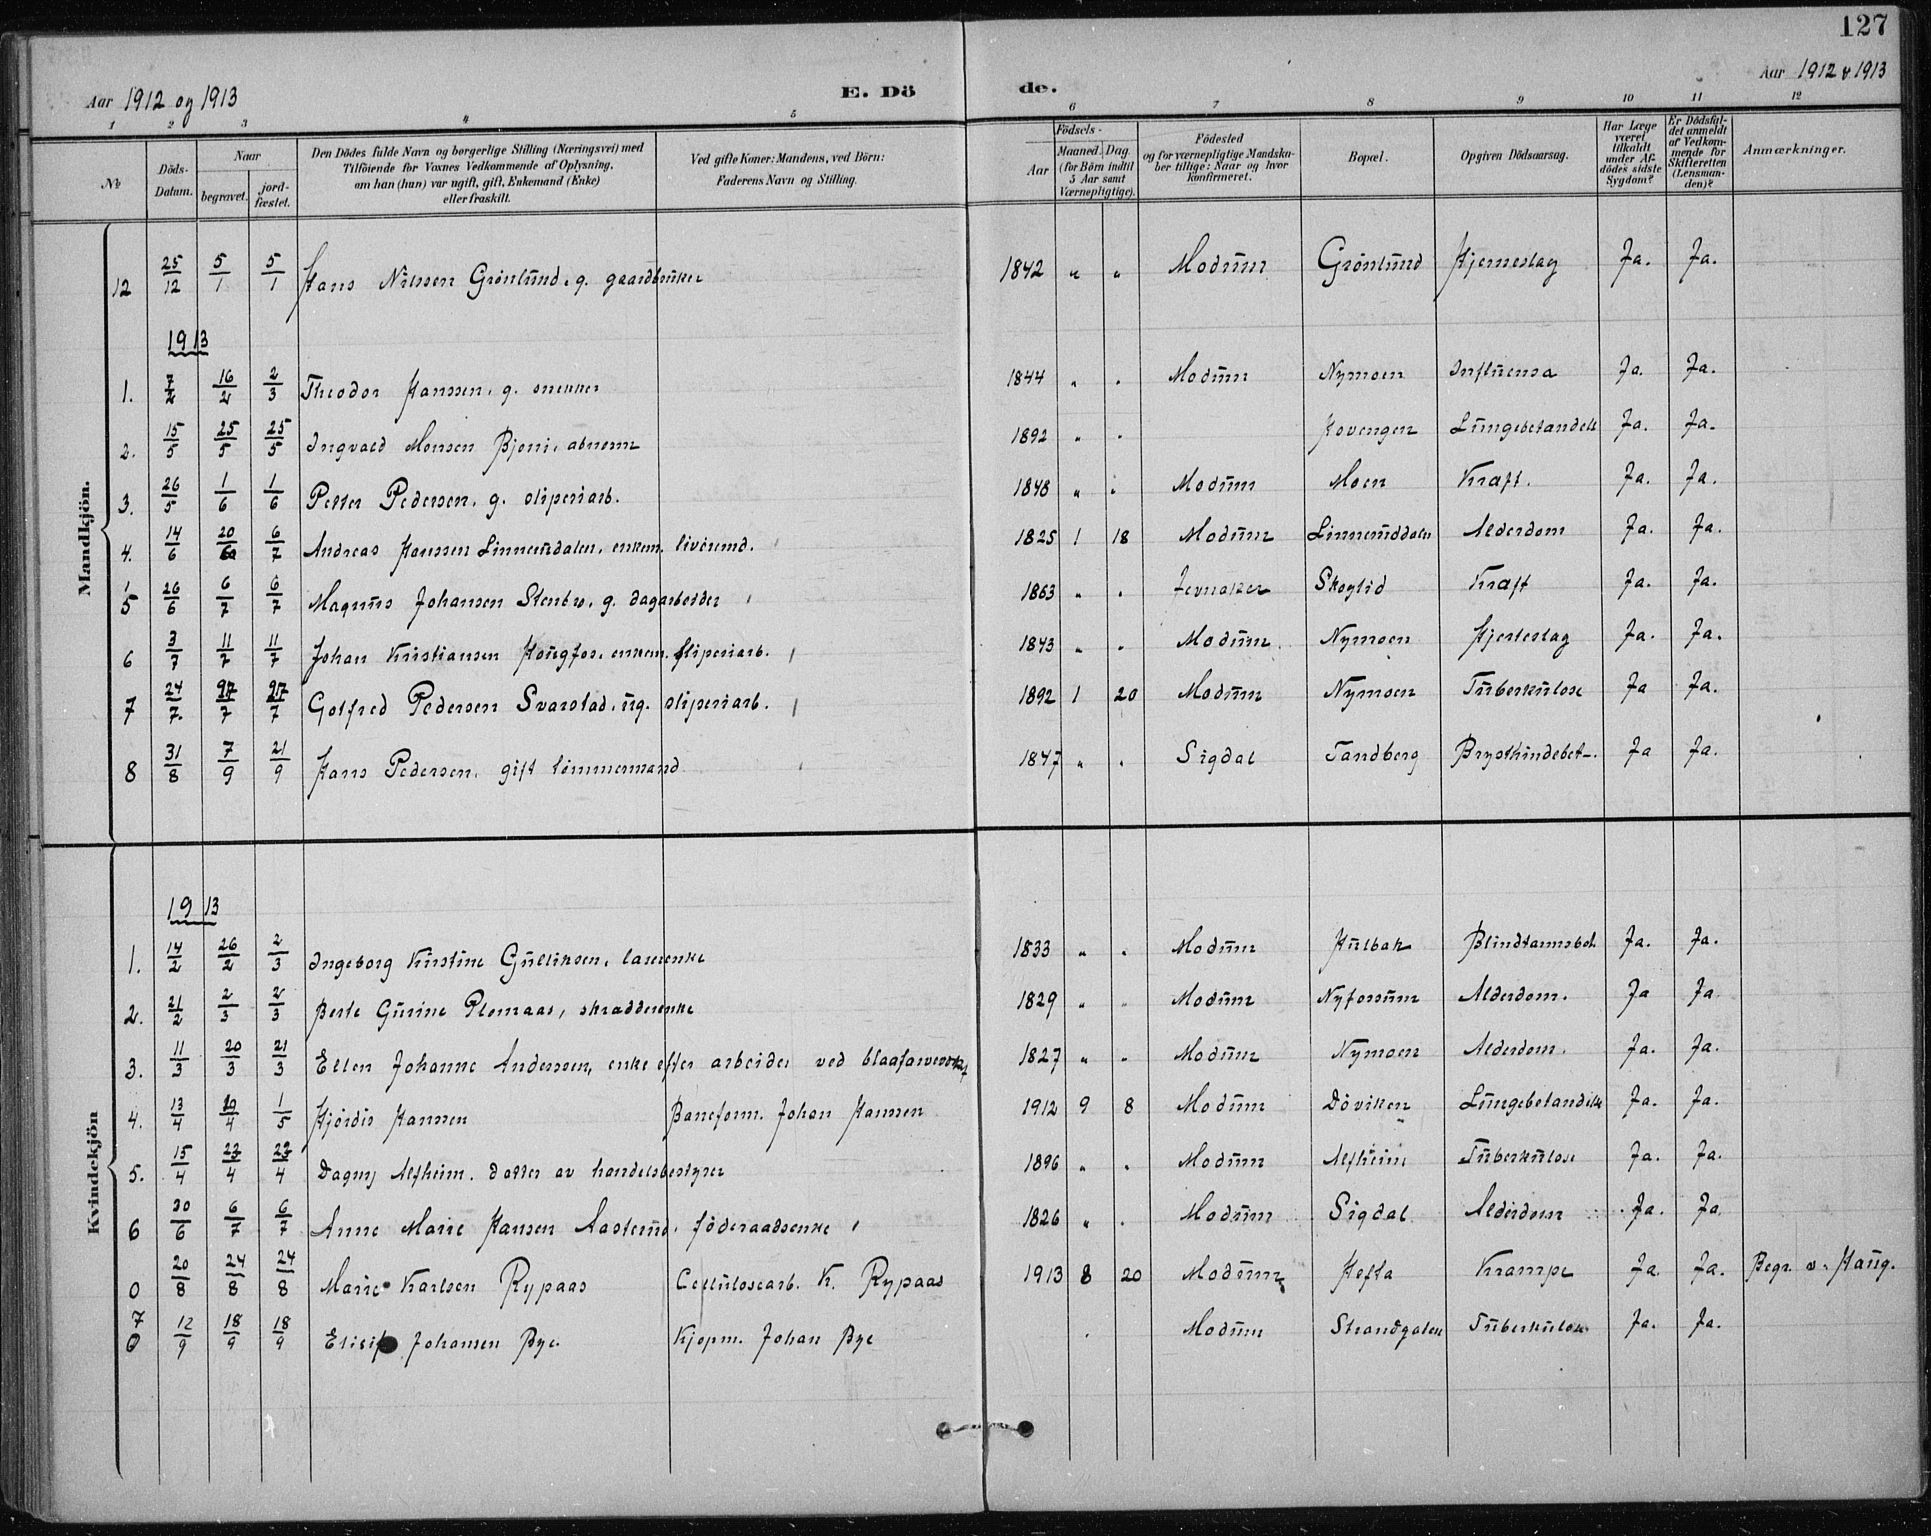 127
Aar 1912 og 1913 E. Dö de. Aar 1912 & 1913
1 2 3 4 5 6 7 8 9 10 11 12
№ Döds-Datum. Naar begravet. jord-fæstet. Den Dödes fulde Navn og borgerlige Stilling (Næringsvei) med Tilföiende for Voxnes Vedkommende af Oplysning, om han (hun) var ugift, gift, Enkemand (Enke) eller fraskilt. Ved gifte Koner: Mandens, ved Börn: Faderens Navn og Stilling. Födsels- Aar Maaned. Dag. (for Börn indtil 5 Aar samt Værnepligtige). Födested og for værnepligtige Mandskaber tillige: Naar og hvor konfirmeret. Bopæl. Opgiven Dödsaarsag. Har Læge været tilkaldt under Afdödes sidste Sygdom? Er Dödsfaldet anmeldt af Vedkommende for Skifteretten (Lensmanden)? Anmærkninger.
Mandkjön.
12 25/12 5/1 5/1 Hans Nilssen Grönlund, g. gaardbruker 1842 " " Modum Grönlund Hjerneslag Ja. Ja.
1913
1. 7/2 16/2 2/3 Theodor Hanssen, g. snekker 1844 " " Modum Nymoen Influensa Ja. Ja.
2. 15/5 25/5 25/5 Ingvald Monsen Bjoni, 1892 " " Hovengen Lungebetændels Ja. Ja.
3. 26/5 1/6 1/6 Petter Pedersen, g. sliperiarb. 1848 " " Modum Moen Kræft. Ja. Ja.
4. 14/6 20/6 6/7 Andreas Hanssen Linnerudalen, enkem. livörend. 1825 1 18 Modum Linneruddalen Alderdom Ja. Ja.
5 26/6 6/7 6/7 Magnus Johansen Stenbro, g. dagarbeider 1863 " " Jevnaker Skoglid Kræft Ja. Ja.
6 3/7 11/7 11/7 Johan Kristiansen Haugfos, enkem. sliperiarb. 1843 " " Modum. Nymoen Hjerteslag Ja. Ja.
7 24/7. 27/7 27/7 Gotfred Pedersen Svarstad, ug. sliperiarb. 1892 1 20 Modum Nymoen Tuberkulose Ja Ja.
8 31/8 7/9 21/9 Hans Pedersen, gift tömmermand 1847 " " Sigdal Tandberg Brysthindebet-. Ja Ja.
Kvindekjön
1913
1. 14/2 26/2 2/3 Ingeborg Kristine Gulliksen, 1833 " " Modum Hulbak Blindtarmsbet. Ja. Ja.
2. 21/2 2/3 2/3 Berte Gurine Plomaas, skrædderenke 1829 " " Modum Nyfossum Alderdom. Ja Ja.
3. 11/3 20/3 21/3 Ellen Johanne Anderssen, enke efter arbeider ved blaafarveverket 1827 " " Modum Nymoen Alderdom. Ja. Ja.
4. 13/4 20/4 1/5 Hjördis Hanssen Baneform. Johan Hanssen 1912 9 8 Modum Döviken Lungebetændelse Ja. Ja.
5. 15/4 23/4 23/4 Dagny Alfheim. datter av handelsbestyrer 1896 " " Modum Alfheim Tuberkulose Ja. Ja.
6 30/6 6/7 6/7 Anne Marie Hansen Aasterud, föderaadsenke 1826 " " Modum Sigdal Alderdom Ja. Ja.
0 20/8 24/8 24/8 Marie Karlsen Rypaas Cellulosearb. K. Rypaas 1913 8 20 Modum Hefta Krampe Ja. Ja. Begr. v. Haug.
7 0 12/9 18/9 18/9 Elisif Johansen Bye. Kjøpm. Johan Bye Modum Strandgaten Tuberkulose. Ja. Ja.